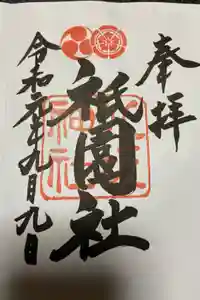 奉拝
祇園社
令和元年九月九日